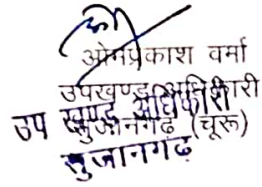 ओमप्रकाश वर्मा
उपखण्ड अधिकारी
उप खण्ड अधिकारी
सुजानगढ (चूरू)
सुजानगढ़